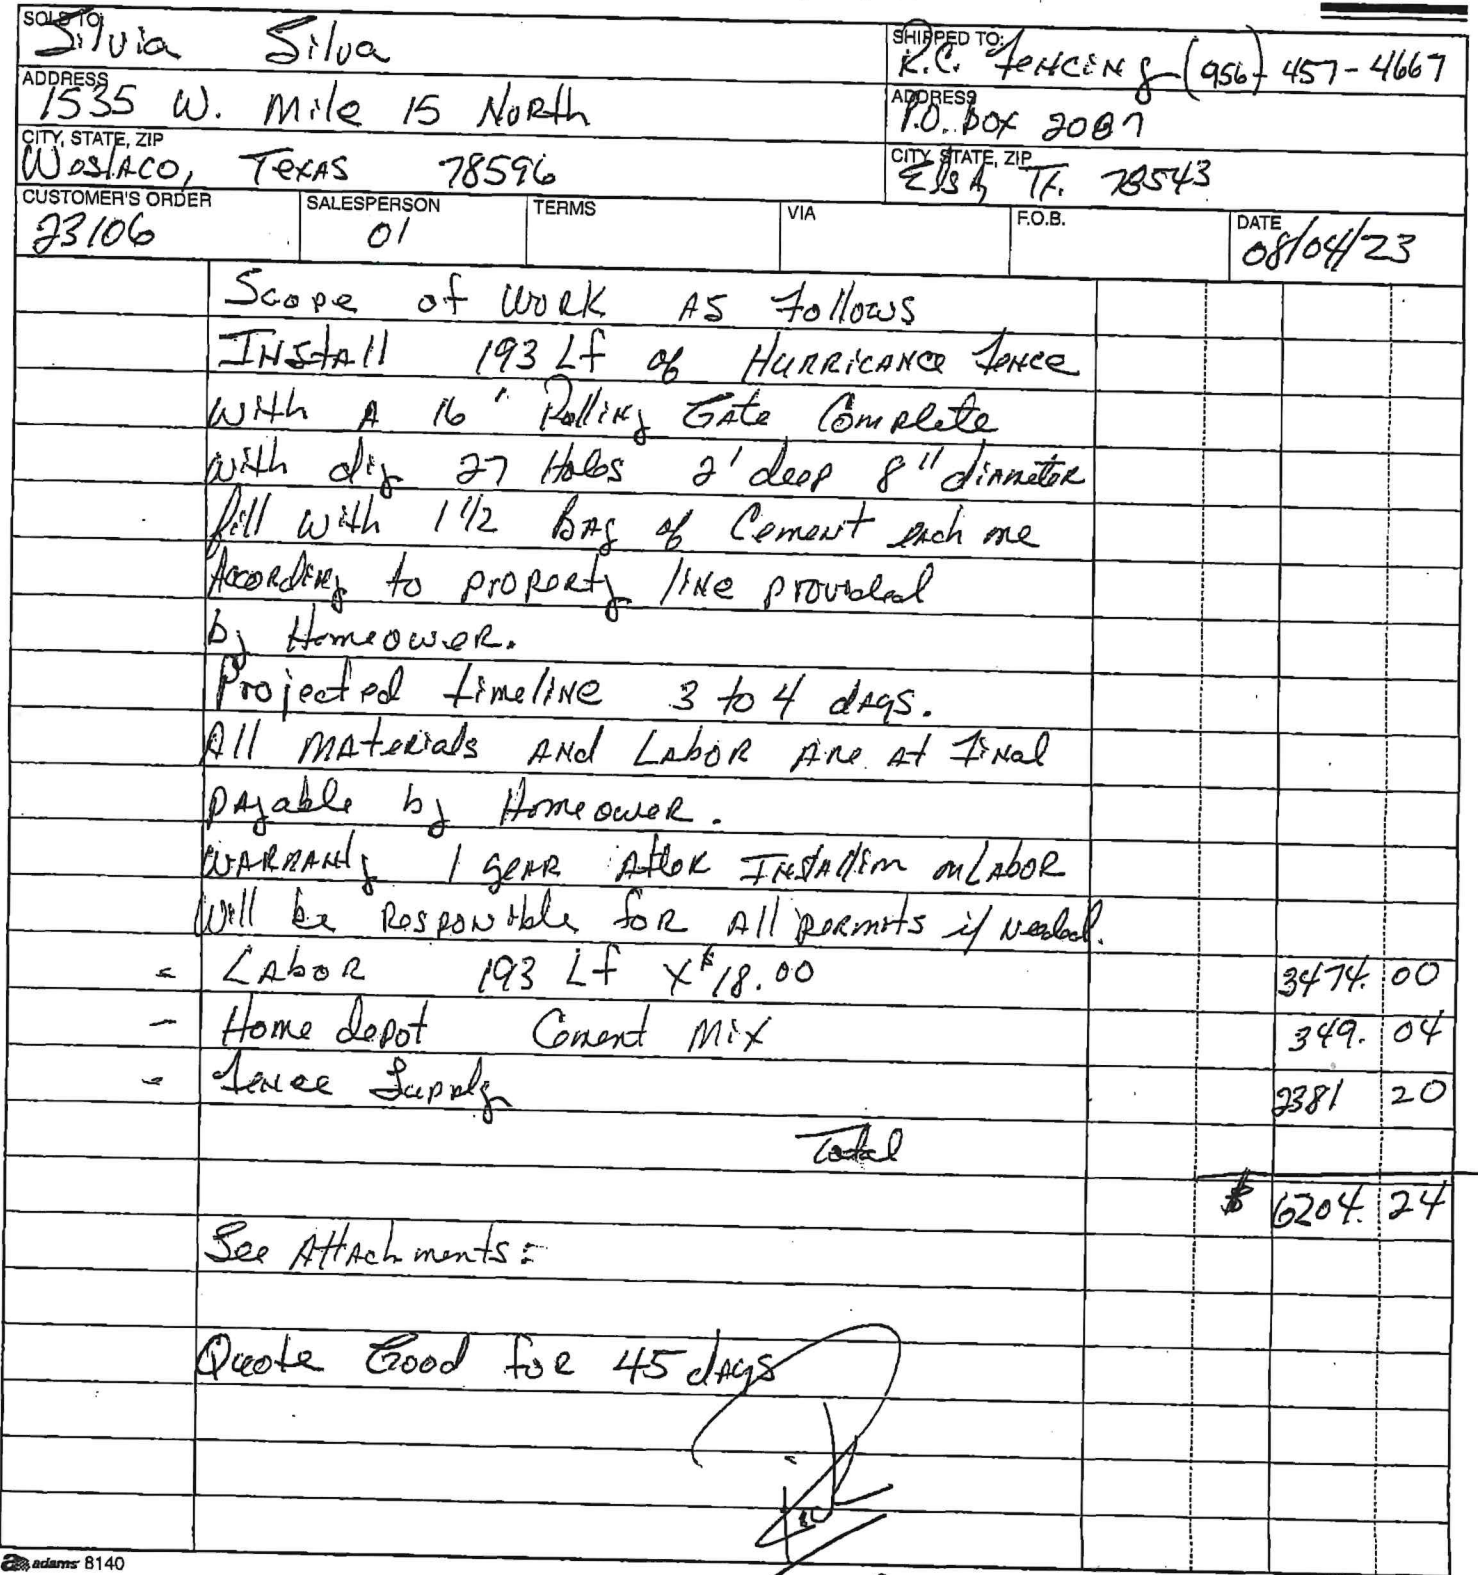 SOLD TO
Silvia Silva
SHIPPED TO:
R.C. Fencing (956) 457-4667
ADDRESS
1535 W. Mile 15 North
ADDRESS
P.O. Box 2087
CITY, STATE, ZIP
Weslaco, Texas 78596
CITY, STATE, ZIP
Elsa, Tx. 78543
CUSTOMER'S ORDER
23106
SALESPERSON
01
TERMS
VIA
F.O.B.
DATE
08/04/23
Scope of Work As Follows
Install 193 Lf of Hurricance Fence
With A 16' Rolling Gate Complete
with dig 27 Holes 2' deep 8" diameter
fill with 1 1/2 Bag of Cement each one
According to property line provided
by Homeower.
Projected timeline 3 to 4 days.
All Materials And Labor Are At Final
payable by Homeower.
Warranty 1 year After on Labor
Will be Responsible for All permits if Needed.
- Labor 193 Lf X $18.00 3474.00
- Home depot Cement Mix 349.04
- Fence Supply 2381 20
Total
$ 6204.24
See Attachments:
Quote Good for 45 days
adams 8140